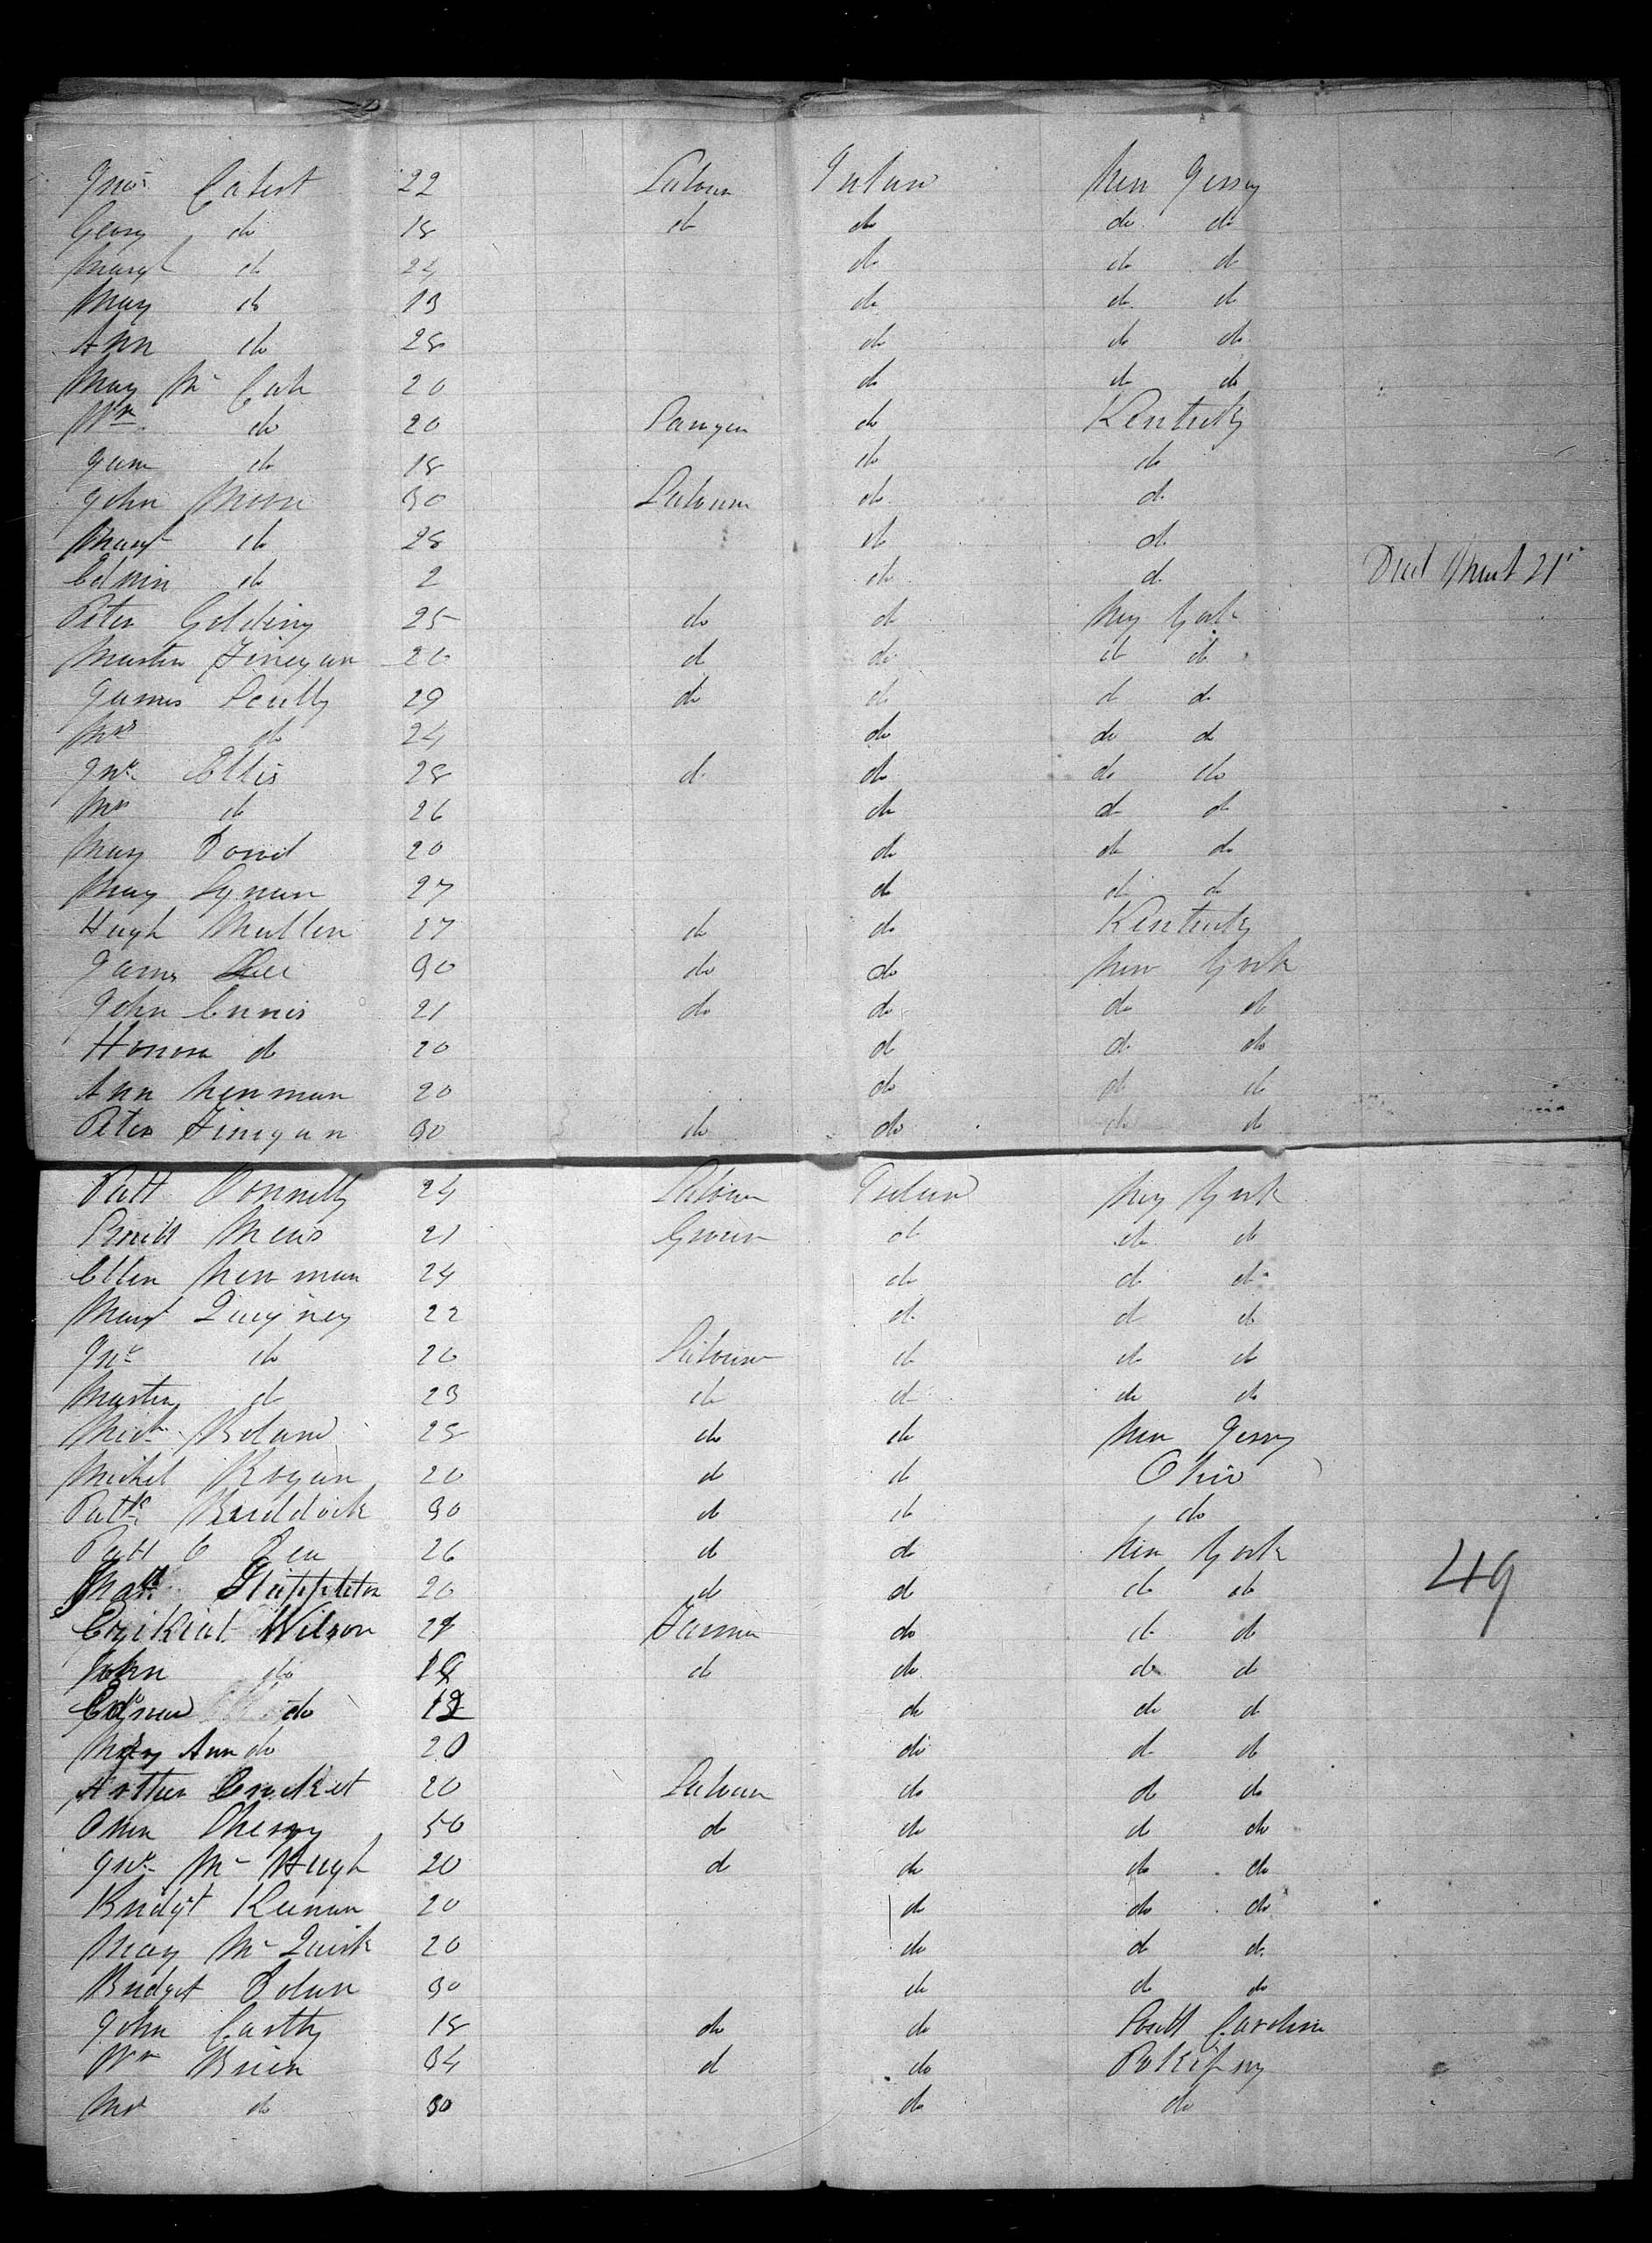 22 Labour Ireland New Jersey
Georg do 18 do do do do
Margt do 24 do do do
Mary do 13 do do do
Ann do 28 do do do
Mary Mc 20 do do do
Wm do 20 do Kentucky
Jane do 18 do do
John Moore 30 Labour do do
Margt do 28 do do
Edwin do 2 do do Died 21st
Peter Golding 25 do do New York
Martin Finegan 20 do do do do
James Scully 29 do do do do
Mrs do 24 do do do
Jno Ellis 28 do do do do
Mrs do 26 do do do
Mary 20 do do do
Mary Lynan 27 do do do
Hugh Mullen 27 do do Kentucky
James 30 do do New York
John Ennis 21 do do do do
Honora do 20 do do do
Ann Newman 20 do do do
Peter Finegan 30 do do do do
Patt Donnelly 24 Labour Ireland New York
21 do do do
Ellen Newman 24 do do do
Margt Quigney 22 do do do
Jno do 20 Labour do do do
Martin do 23 do do do do
Mich Boland 28 do do New Jersey
Michel Hogan 20 do do Ohio
Patk Braddock 30 do do do
Patt O Dea 26 do do New York
Matt Stappleton 20 do do do do
49
Ezikial Wilson 24 Farmer do do do
John do 18 do do do do
do 12 do do do
Mary Ann do 20 do do do
Arthur 20 Labour do do do
Owen 50 do do do do
Jno Mc Hugh 20 do do do do
Bridgt Keenan 20 do do do
Mary Mc Quirk 20 do do do
Bridget Dolan 30 do do do
John Carthy 18 do do South Carolina
Wm Brien 34 do do
Mrs do 30 do do